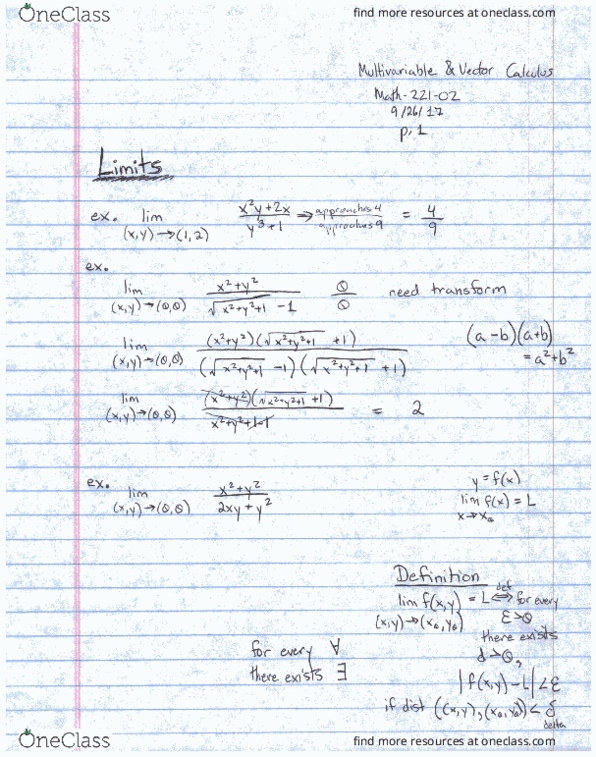 OneClass
find more resources at oneclass.com
Multivariable & Vector Calculus
Math-221-02
9/26/17
p. 1
Limits
ex. lim (x,y)→(1,2) (x²y+2x)/(y³+1) ⇒ approaches 4 / approaches 9 = 4/9
ex.
lim (x,y)→(0,0) (x²+y²)/(√(x²+y²+1) -1) 0/0 need transform
lim (x,y)→(0,0) (x²+y²)(√(x²+y²+1) +1)/((√(x²+y²+1) -1)(√(x²+y²+1) +1)) (a-b)(a+b)
= a²+b²
lim (x,y)→(0,0) (x²+y²)(√(x²+y²+1) +1)/(x²+y²+1-1) = 2
ex. lim (x,y)→(0,0) (x²+y²)/(2xy+y²)
y = f(x)
lim f(x) = L
x→x₀
Definition
lim f(x,y) = L ⇔ def for every
(x,y)→(x₀,y₀) ε>0
there exists
d>0,
|f(x,y)-L|<ε
if dist ((x,y),(x₀,y₀)) < δ
delta
for every ∀
there exists ∃
OneClass
find more resources at oneclass.com